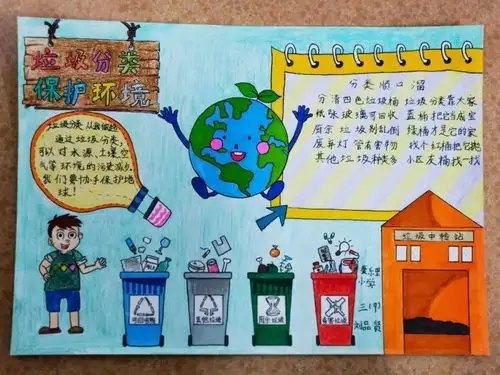 垃圾分类
保护环境
垃圾分类 从我做起
通过垃圾分类,
可以对水源、土壤、空
气等环境的污染减少。
我们要协手保护地
球!
分类顺口溜
分清四色垃圾桶
纸张玻璃可回收
厨余垃圾别乱倒
废弃灯管有害物
其他垃圾种类多
垃圾分类靠大家
蓝桶把它当成宝
绿桶才是它的家
找个红桶把它抛
小区灰桶找一找
垃圾中转站
可回收物
其他垃圾
厨余垃圾
有害垃圾
小学